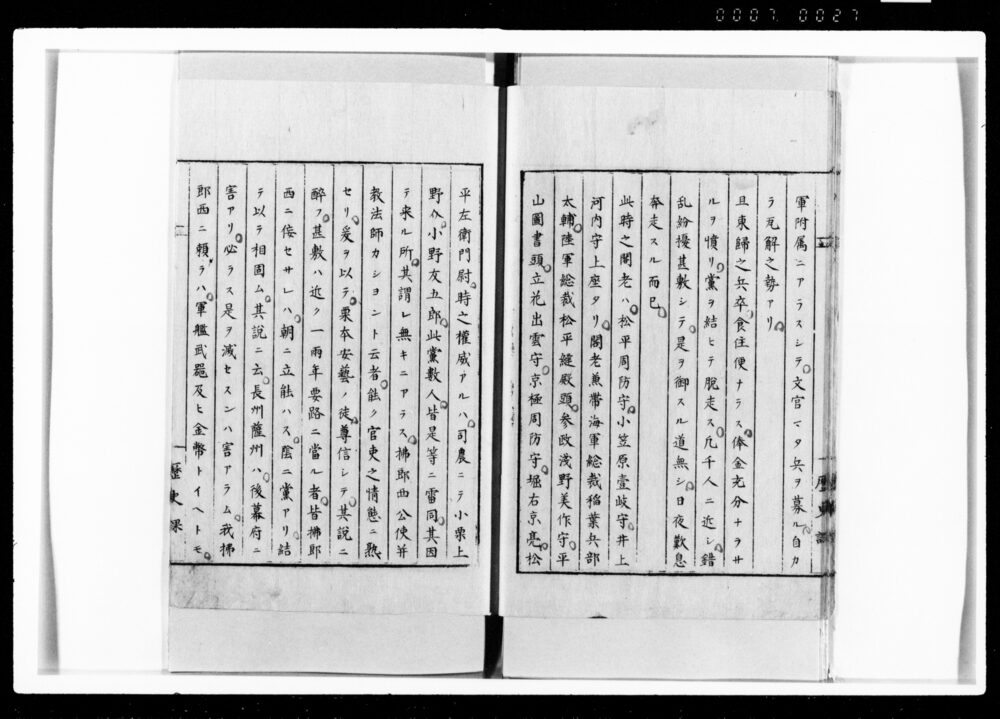 0007 0027
軍附属ニアラスシテ文官マタ兵ヲ募ル自カ
ラ瓦解之勢アリ
且東歸之兵卒食住便ナラス俸金充分ナラサ
ルヲ憤リ黨ヲ結ヒテ脱走ス凡千人ニ近シ錯
乱紛擾甚敷シテ是ヲ御スル道無シ日夜歎息
奔走スル而已
此時之閣老ハ松平周防守小笠原壹岐守井上
河内守上座タリ閣老兼帯海軍総裁稲葉兵部
太輔陸軍総裁松平縫殿頭参政浅野美作守平
山圖書頭立花出雲守京極周防守堀右京亮松
歴史課
平左衛門尉時之權威アルハ司農ニテ小栗上
野介小野友五郎此黨數人皆是等ニ雷同其因
テ来ル所其謂レ無キニアラス拂郎西公使并
教法師カションと云者能ク官吏之情態ニ熟
セリ爰ヲ以テ栗本安藝ノ徒尊信シテ其說ニ
醉フ甚敷ハ近ク一両年要路ニ當ル者皆拂郎
西ニ侫セサレハ朝ニ立能ハス陰ニ黨アリ結
テ以テ相固ム其說ニ云長州薩州ハ後幕府ニ
害アリ必ラス是ヲ滅セスンハ害アラム我拂
郎西ニ頼ラハ軍艦武器及ヒ金幣トイヘトモ
歴史課